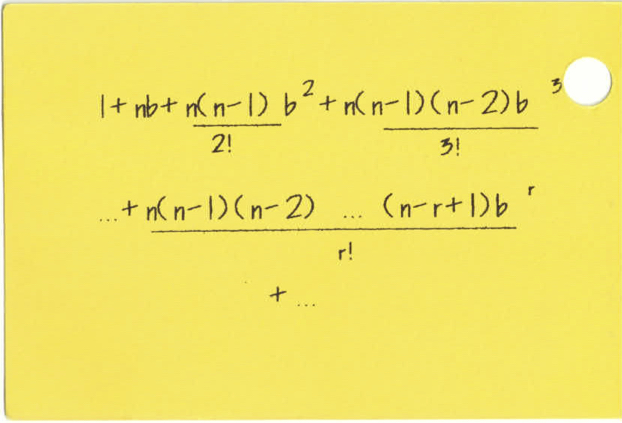 1 + nb + n(n-1) b² + n(n-1)(n-2)b³
2! 3!
...+ n(n-1)(n-2) ... (n-r+1)b^r
r!
+ ...